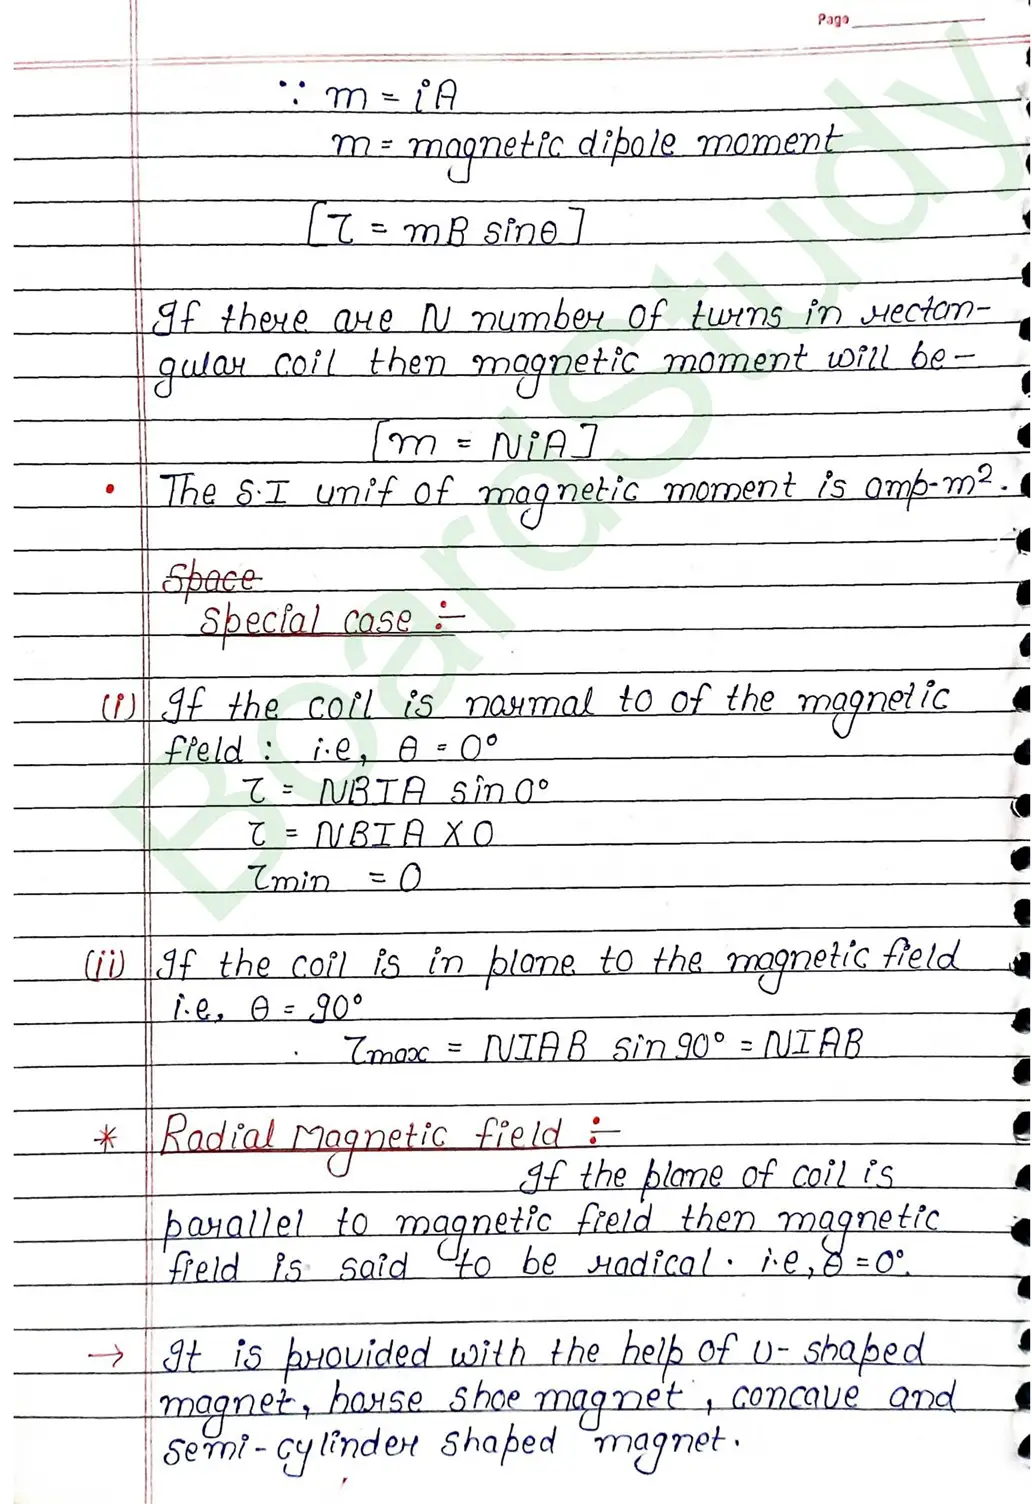 Page
∵ m = iA
m = magnetic dipole moment
[τ = mB sinθ]
If there are N number of turns in rectan-
gular coil then magnetic moment will be –
[m = NiA]
• The S.I unit of magnetic moment is amp-m².
Space
Special case :-
(i) If the coil is normal to of the magnetic
field : i.e, θ = 0°
τ = NBIA sin 0°
τ = NBIA X 0
τmin = 0
(ii) If the coil is in plane to the magnetic field
i.e, θ = 90°
τmax = NIAB sin 90° = NIAB
* Radial Magnetic field :-
If the plane of coil is
parallel to magnetic field then magnetic
field is said to be radical. i.e, θ = 0°.
→ It is provided with the help of U-shaped
magnet, horse shoe magnet, concave and
semi-cylinder shaped magnet.
BoardStudy